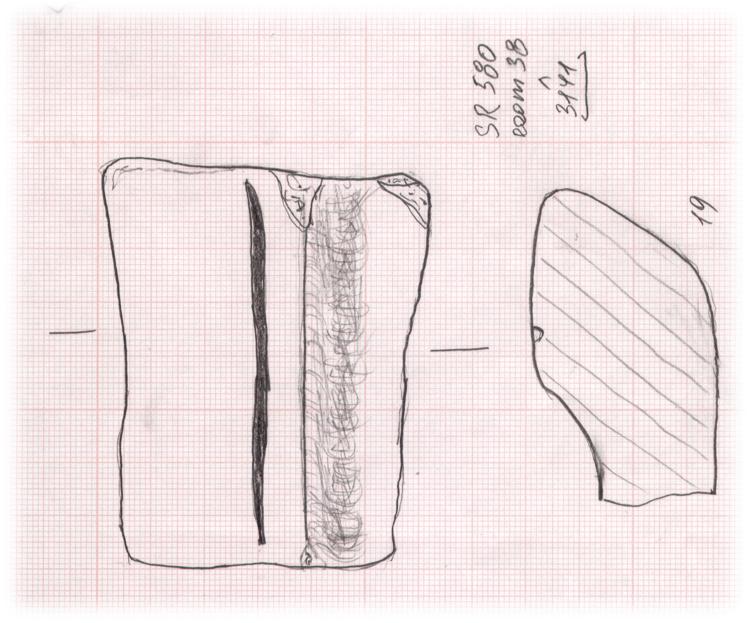 SR 580
room 38
3141
19